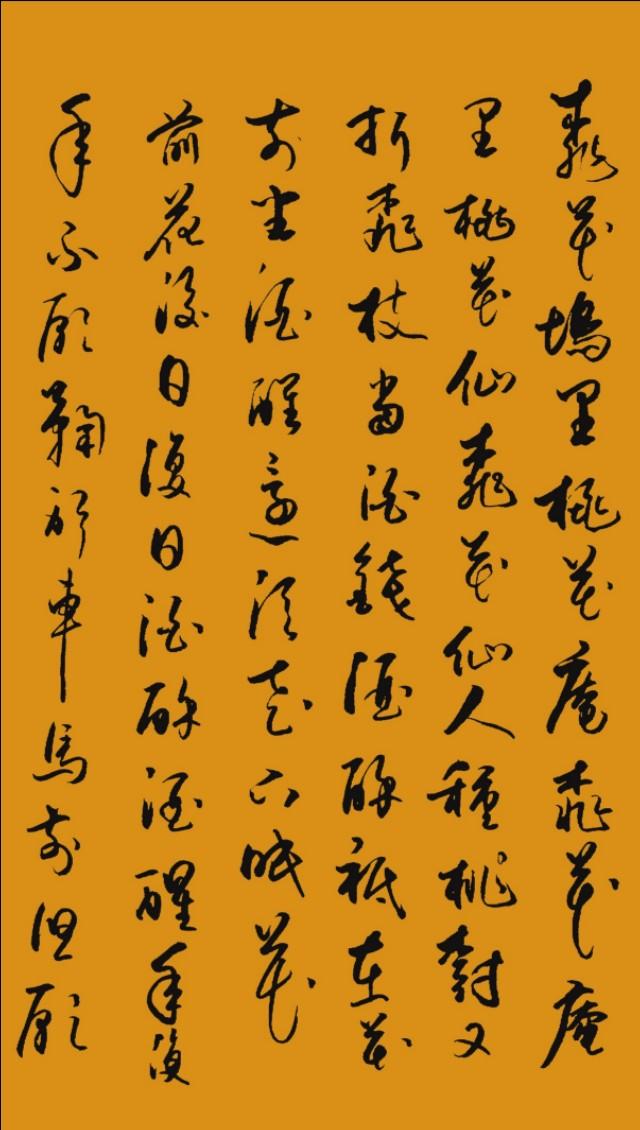 桃花塢里桃花庵桃花庵
里桃花仙桃花仙人種桃樹又
折桃枝當酒錢酒醉祗在花
前坐酒醒還須花下眠花
前花後日復日酒醉酒醒年復
年不願鞠躬車馬前但願